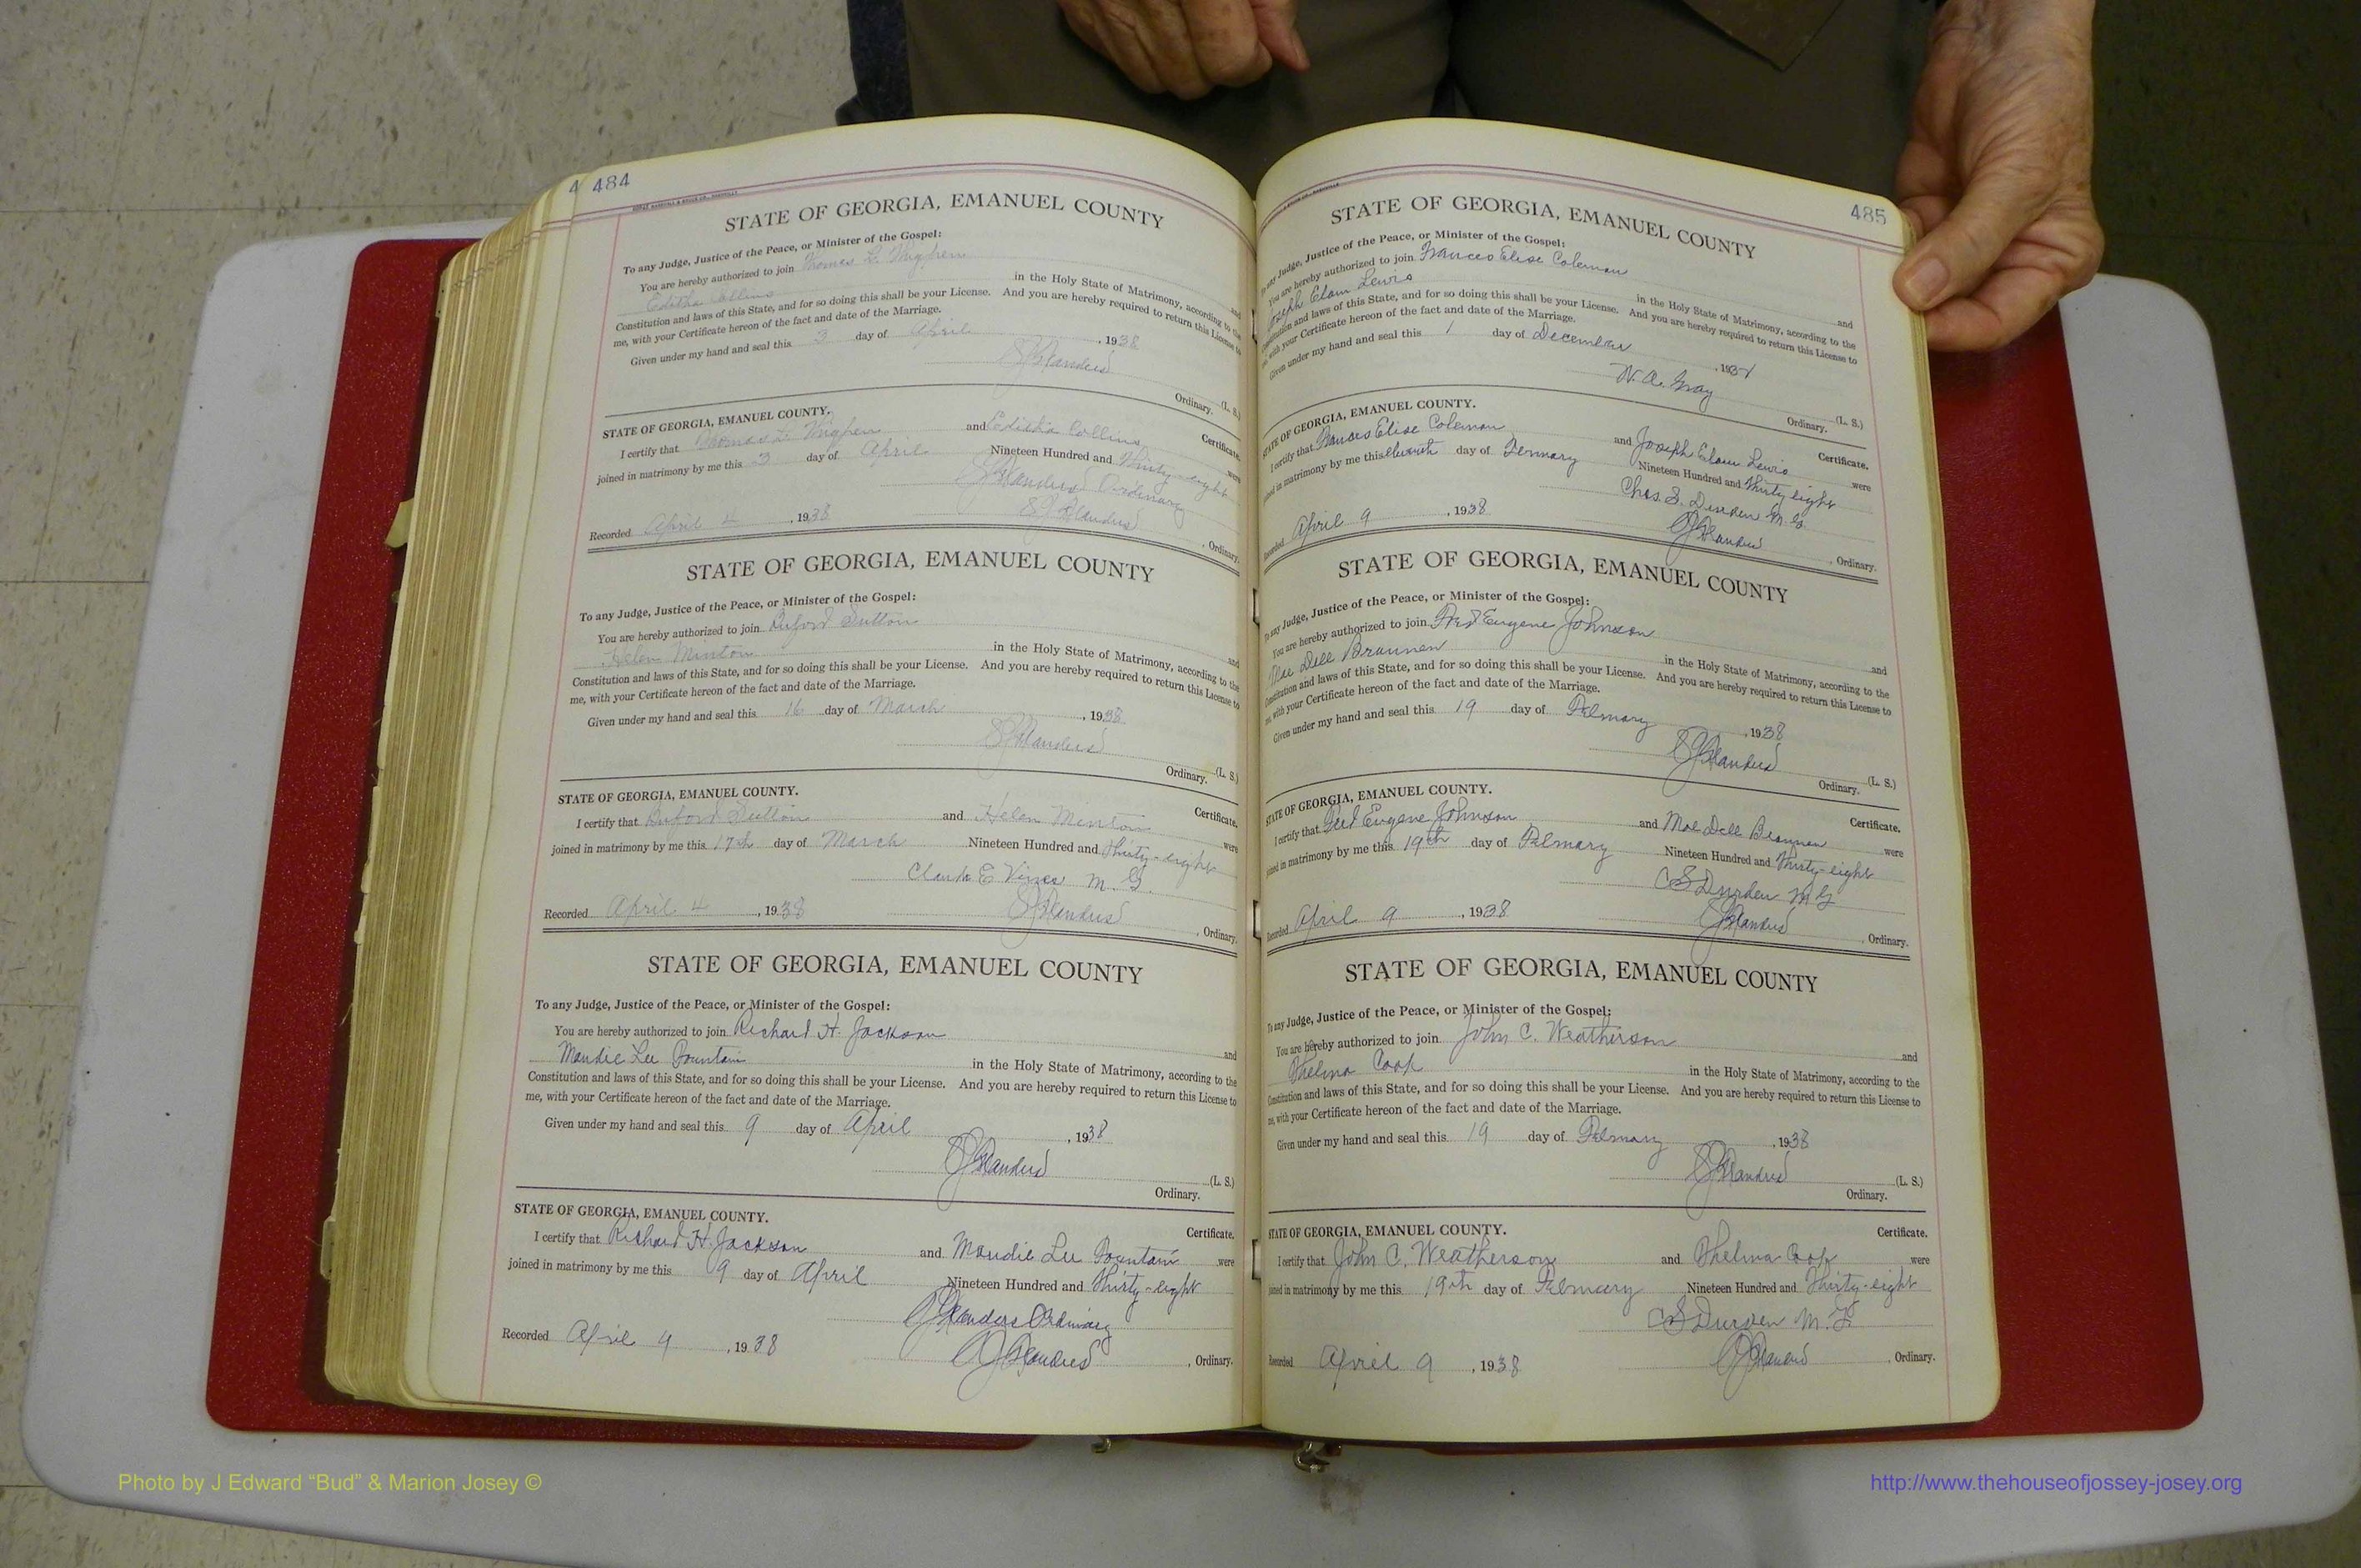 484
STATE OF GEORGIA, EMANUEL COUNTY
To any Judge, Justice of the Peace, or Minister of the Gospel:
You are hereby authorized to join Thomas L. and
Editha Collins in the Holy State of Matrimony, according to the
Constitution and laws of this State, and for so doing this shall be your License. And you are hereby required to return this License to
me, with your Certificate hereon of the fact and date of the Marriage.
Given under my hand and seal this 3 day of April, 1938
(L. S.)
Ordinary.
STATE OF GEORGIA, EMANUEL COUNTY. Certificate.
I certify that Thomas L. and Editha Collins were
joined in matrimony by me this 3 day of April Nineteen Hundred and Thirty-eight
Ordinary
Recorded April 4, 1938 , Ordinary.
STATE OF GEORGIA, EMANUEL COUNTY
To any Judge, Justice of the Peace, or Minister of the Gospel:
You are hereby authorized to join Buford Sutton and
Helen Minton in the Holy State of Matrimony, according to the
Constitution and laws of this State, and for so doing this shall be your License. And you are hereby required to return this License to
me, with your Certificate hereon of the fact and date of the Marriage.
Given under my hand and seal this 16 day of March, 1938
(L. S.)
Ordinary.
STATE OF GEORGIA, EMANUEL COUNTY. Certificate.
I certify that Buford Sutton and Helen Minton were
joined in matrimony by me this 17th day of March Nineteen Hundred and Thirty-eight
E Vines M. G.
Recorded April 4, 1938 , Ordinary.
STATE OF GEORGIA, EMANUEL COUNTY
To any Judge, Justice of the Peace, or Minister of the Gospel:
You are hereby authorized to join Richard H. Jackson and
Maudie Lee Fountain in the Holy State of Matrimony, according to the
Constitution and laws of this State, and for so doing this shall be your License. And you are hereby required to return this License to
me, with your Certificate hereon of the fact and date of the Marriage.
Given under my hand and seal this 9 day of April, 1938
(L. S.)
Ordinary.
STATE OF GEORGIA, EMANUEL COUNTY. Certificate.
I certify that Richard H. Jackson and Maudie Lee Fountain were
joined in matrimony by me this 9 day of April Nineteen Hundred and Thirty-eight
Ordinary
Recorded April 9, 1938 , Ordinary.
485
STATE OF GEORGIA, EMANUEL COUNTY
any Judge, Justice of the Peace, or Minister of the Gospel:
You are hereby authorized to join Frances Elise Coleman and
Joseph Elam Lewis in the Holy State of Matrimony, according to the
Constitution and laws of this State, and for so doing this shall be your License. And you are hereby required to return this License to
me, with your Certificate hereon of the fact and date of the Marriage.
Given under my hand and seal this 1 day of December, 193
W. A. Gray (L. S.)
Ordinary.
STATE OF GEORGIA, EMANUEL COUNTY. Certificate.
I certify that Frances Elise Coleman and Joseph Elam Lewis were
joined in matrimony by me this day of Nineteen Hundred and Thirty eight
Chas. S. Durden M. G.
Recorded April 9, 1938 , Ordinary.
STATE OF GEORGIA, EMANUEL COUNTY
To any Judge, Justice of the Peace, or Minister of the Gospel:
You are hereby authorized to join Fred Eugene Johnson and
Mae Dell Brannen in the Holy State of Matrimony, according to the
Constitution and laws of this State, and for so doing this shall be your License. And you are hereby required to return this License to
me, with your Certificate hereon of the fact and date of the Marriage.
Given under my hand and seal this 19 day of February, 1938
(L. S.)
Ordinary.
STATE OF GEORGIA, EMANUEL COUNTY. Certificate.
I certify that Fred Eugene Johnson and Mae Dell Brannen were
joined in matrimony by me this 19th day of February Nineteen Hundred and Thirty-eight
C S Durden M G
Recorded April 9, 1938 , Ordinary.
STATE OF GEORGIA, EMANUEL COUNTY
To any Judge, Justice of the Peace, or Minister of the Gospel:
You are hereby authorized to join John C. Weatherson and
Thelma Cook in the Holy State of Matrimony, according to the
Constitution and laws of this State, and for so doing this shall be your License. And you are hereby required to return this License to
me, with your Certificate hereon of the fact and date of the Marriage.
Given under my hand and seal this 19 day of February, 1938
(L. S.)
Ordinary.
STATE OF GEORGIA, EMANUEL COUNTY. Certificate.
I certify that John C. Weatherson and Thelma Cook were
joined in matrimony by me this 19th day of February Nineteen Hundred and Thirty-eight
C S Durden M. G.
Recorded April 9, 1938 , Ordinary.
Photo by J Edward “Bud” & Marion Josey ©
http://www.thehouseofjossey-josey.org